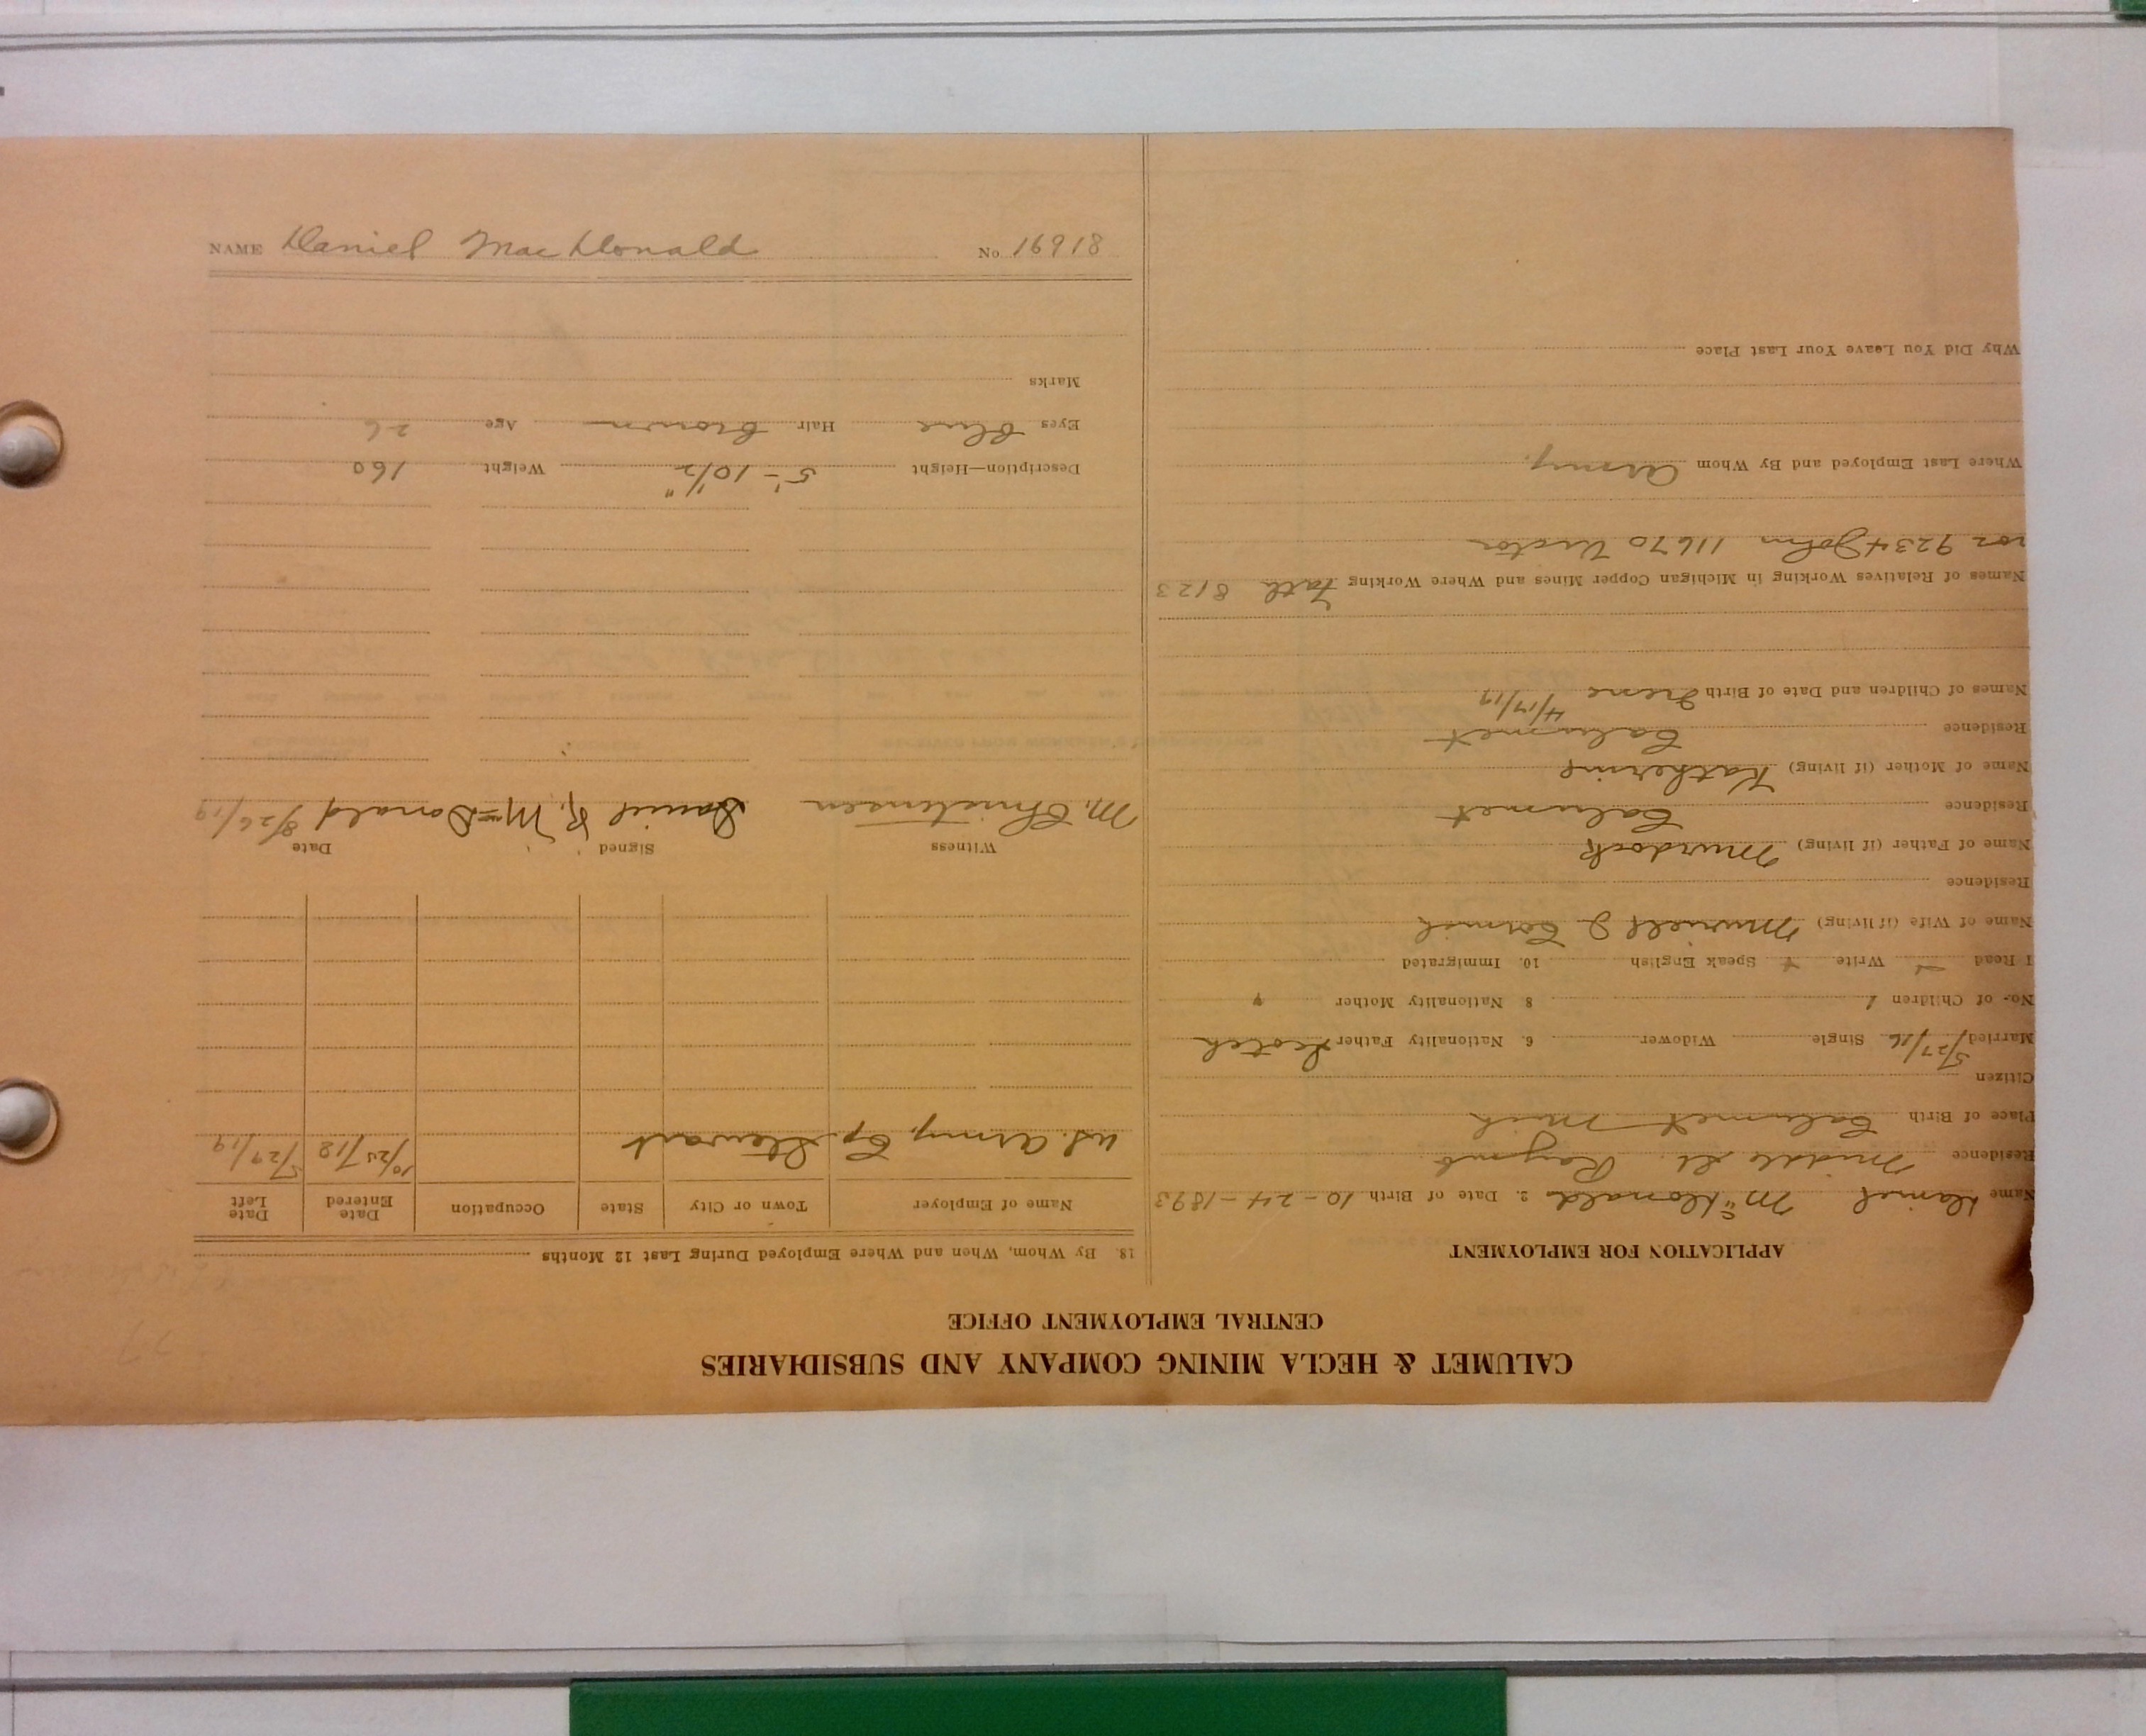 CALUMET & HECLA MINING COMPANY AND SUBSIDIARIES
CENTRAL EMPLOYMENT OFFICE
APPLICATION FOR EMPLOYMENT
Name Daniel McDonald 2. Date of Birth 10-24-1893
Residence Middle St. Raymb.
Place of Birth Calumet Mich
Citizen
Married 5/27/16 Single Widower 6. Nationality Father Scotch
No. of Children 1 8. Nationality Mother "
I Read Write Speak English 10. Immigrated
Name of Wife (if living) Muriell J
Residence
Name of Father (if living) Murdock
Residence Calumet
Name of Mother (if living) Katherine
Residence Calumet
Names of Children and Date of Birth Irene 4/17/19
Names of Relatives Working in Michigan Copper Mines and Where Working Fath 8123
9234 John 11670 Victor
Where Last Employed and By Whom Army.
Why Did You Leave Your Last Place
18. By Whom, When and Where Employed During Last 12 Months
Name of Employer Town or City State Occupation Date Entered Date Left
U.S. Army, Cp. Stewart 10/25/18 5/27/19
Witness Signed Date
M. Christensen Daniel R. McDonald 8/26/19
Description—Height 5'-10 1/2" Weight 160
Eyes Blue Hair Brown Age 26
Marks
NAME Daniel MacDonald No. 16918